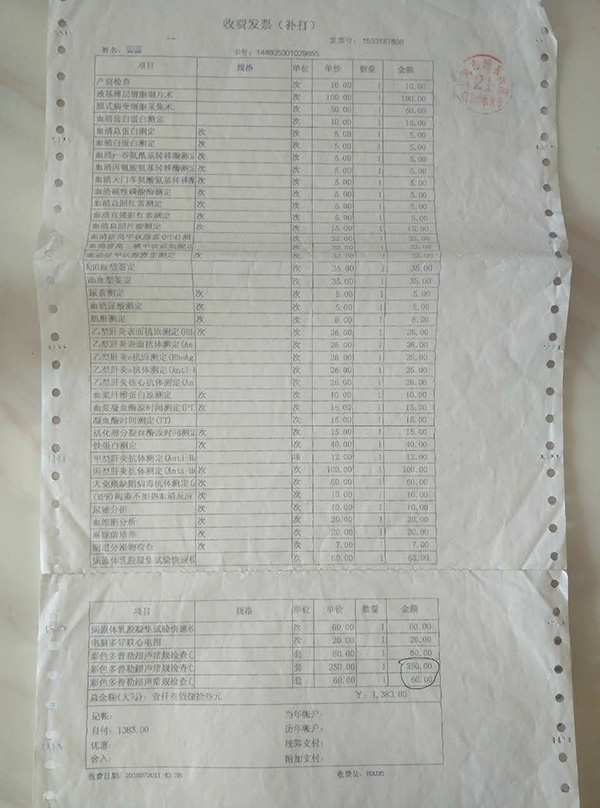 收费发票（补打）
发票号：1533187806
姓名： 卡号：144605001029865
项目 规格 单位 单价 数量 金额
产前检查 次 10.00 1 10.00
液基薄层细胞制片术 次 100.00 1 100.00
脱式病变细胞采集术 次 50.00 1
血清前白蛋白测定 次 10.00 1 10.00
血清总蛋白测定 次 次 5.00 1 5.00
血清白蛋白测定 次 次 5.00 1 5.00
血清r-谷氨酰基转移酶测定 次 次 5.00 1 5.00
血清丙氨酸氨基转移酶测定 次 次 5.00 1 5.00
血清天门冬氨酸氨基转移酶 次 次 5.00 1 5.00
血清碱性磷酸酶测定 次 次 5.00 1 5.00
血清总胆红素测定 次 次 5.00 1 5.00
血清直接胆红素测定 次 次 5.00 1 5.00
血清总胆汁酸测定 次 次 15.00 1 15.00
次 32.00 1
次 1
次 1
ABO血型鉴定 次 35.00 1 35.00
Rh血型鉴定 次 35.00 1 35.00
尿素测定 次 次 5.00 1 5.00
血清尿酸测定 次 次 5.00 1 5.00
肌酐测定 次 次 8.00 1 8.00
乙型肝炎表面抗原测定(HB 次 次 26.00 1 26.00
乙型肝炎表面抗体测定(An 次 26.00 1 26.00
乙型肝炎e抗原测定(HbeAg 次 26.00 1 26.00
乙型肝炎e抗体测定(Anti-H 次 26.00 1 26.00
乙型肝炎核心抗体测定(An 次 26.00 1 26.00
血浆纤维蛋白原测定 次 次 10.00 1 10.00
血浆凝血酶原时间测定(PT) 次 次 15.00 1 15.00
凝血酶时间测定(TT) 次 次 15.00 1 15.00
活化部分凝血酶原时间测定 次 次 15.00 1 15.00
铁蛋白测定 次 次 40.00 1 40.00
甲型肝炎抗体测定(Anti-Ha 项 12.00 1 12.00
丙型肝炎抗体测定(Anti-H 次 次 100.00 1 100.00
人免疫缺陷病毒抗体测定( 次 次 60.00 1 60.00
梅毒不加热血清反应 次 次 10.00 1 10.00
尿液分析 次 次 10.00 1 10.00
血细胞分析 次 次 20.00 1 20.00
淋球菌培养 次 次 20.00 1 20.00
阴道分泌物检查 次 次 7.00 1 7.00
病原体乳胶凝集试验快速检 次 次 60.00 1 60.00
项目 规格 单位 单价 数量 金额
病原体乳胶凝集试验快速检 次 60.00 1 60.00
电脑多导联心电图 次 20.00 1 20.00
彩色多普勒超声常规检查( 套 60.00 1 60.00
彩色多普勒超声常规检查( 套 250.00 1 250.00
彩色多普勒超声常规检查( 套 60.00 1 60.00
总金额(大写)：壹仟叁佰捌拾叁元 ￥：1,383.00
记帐： 当年帐户：
自付：1383.00 历年帐户：
优惠： 统筹支付：
舍入： 附加支付：
收费日期： 收费员：